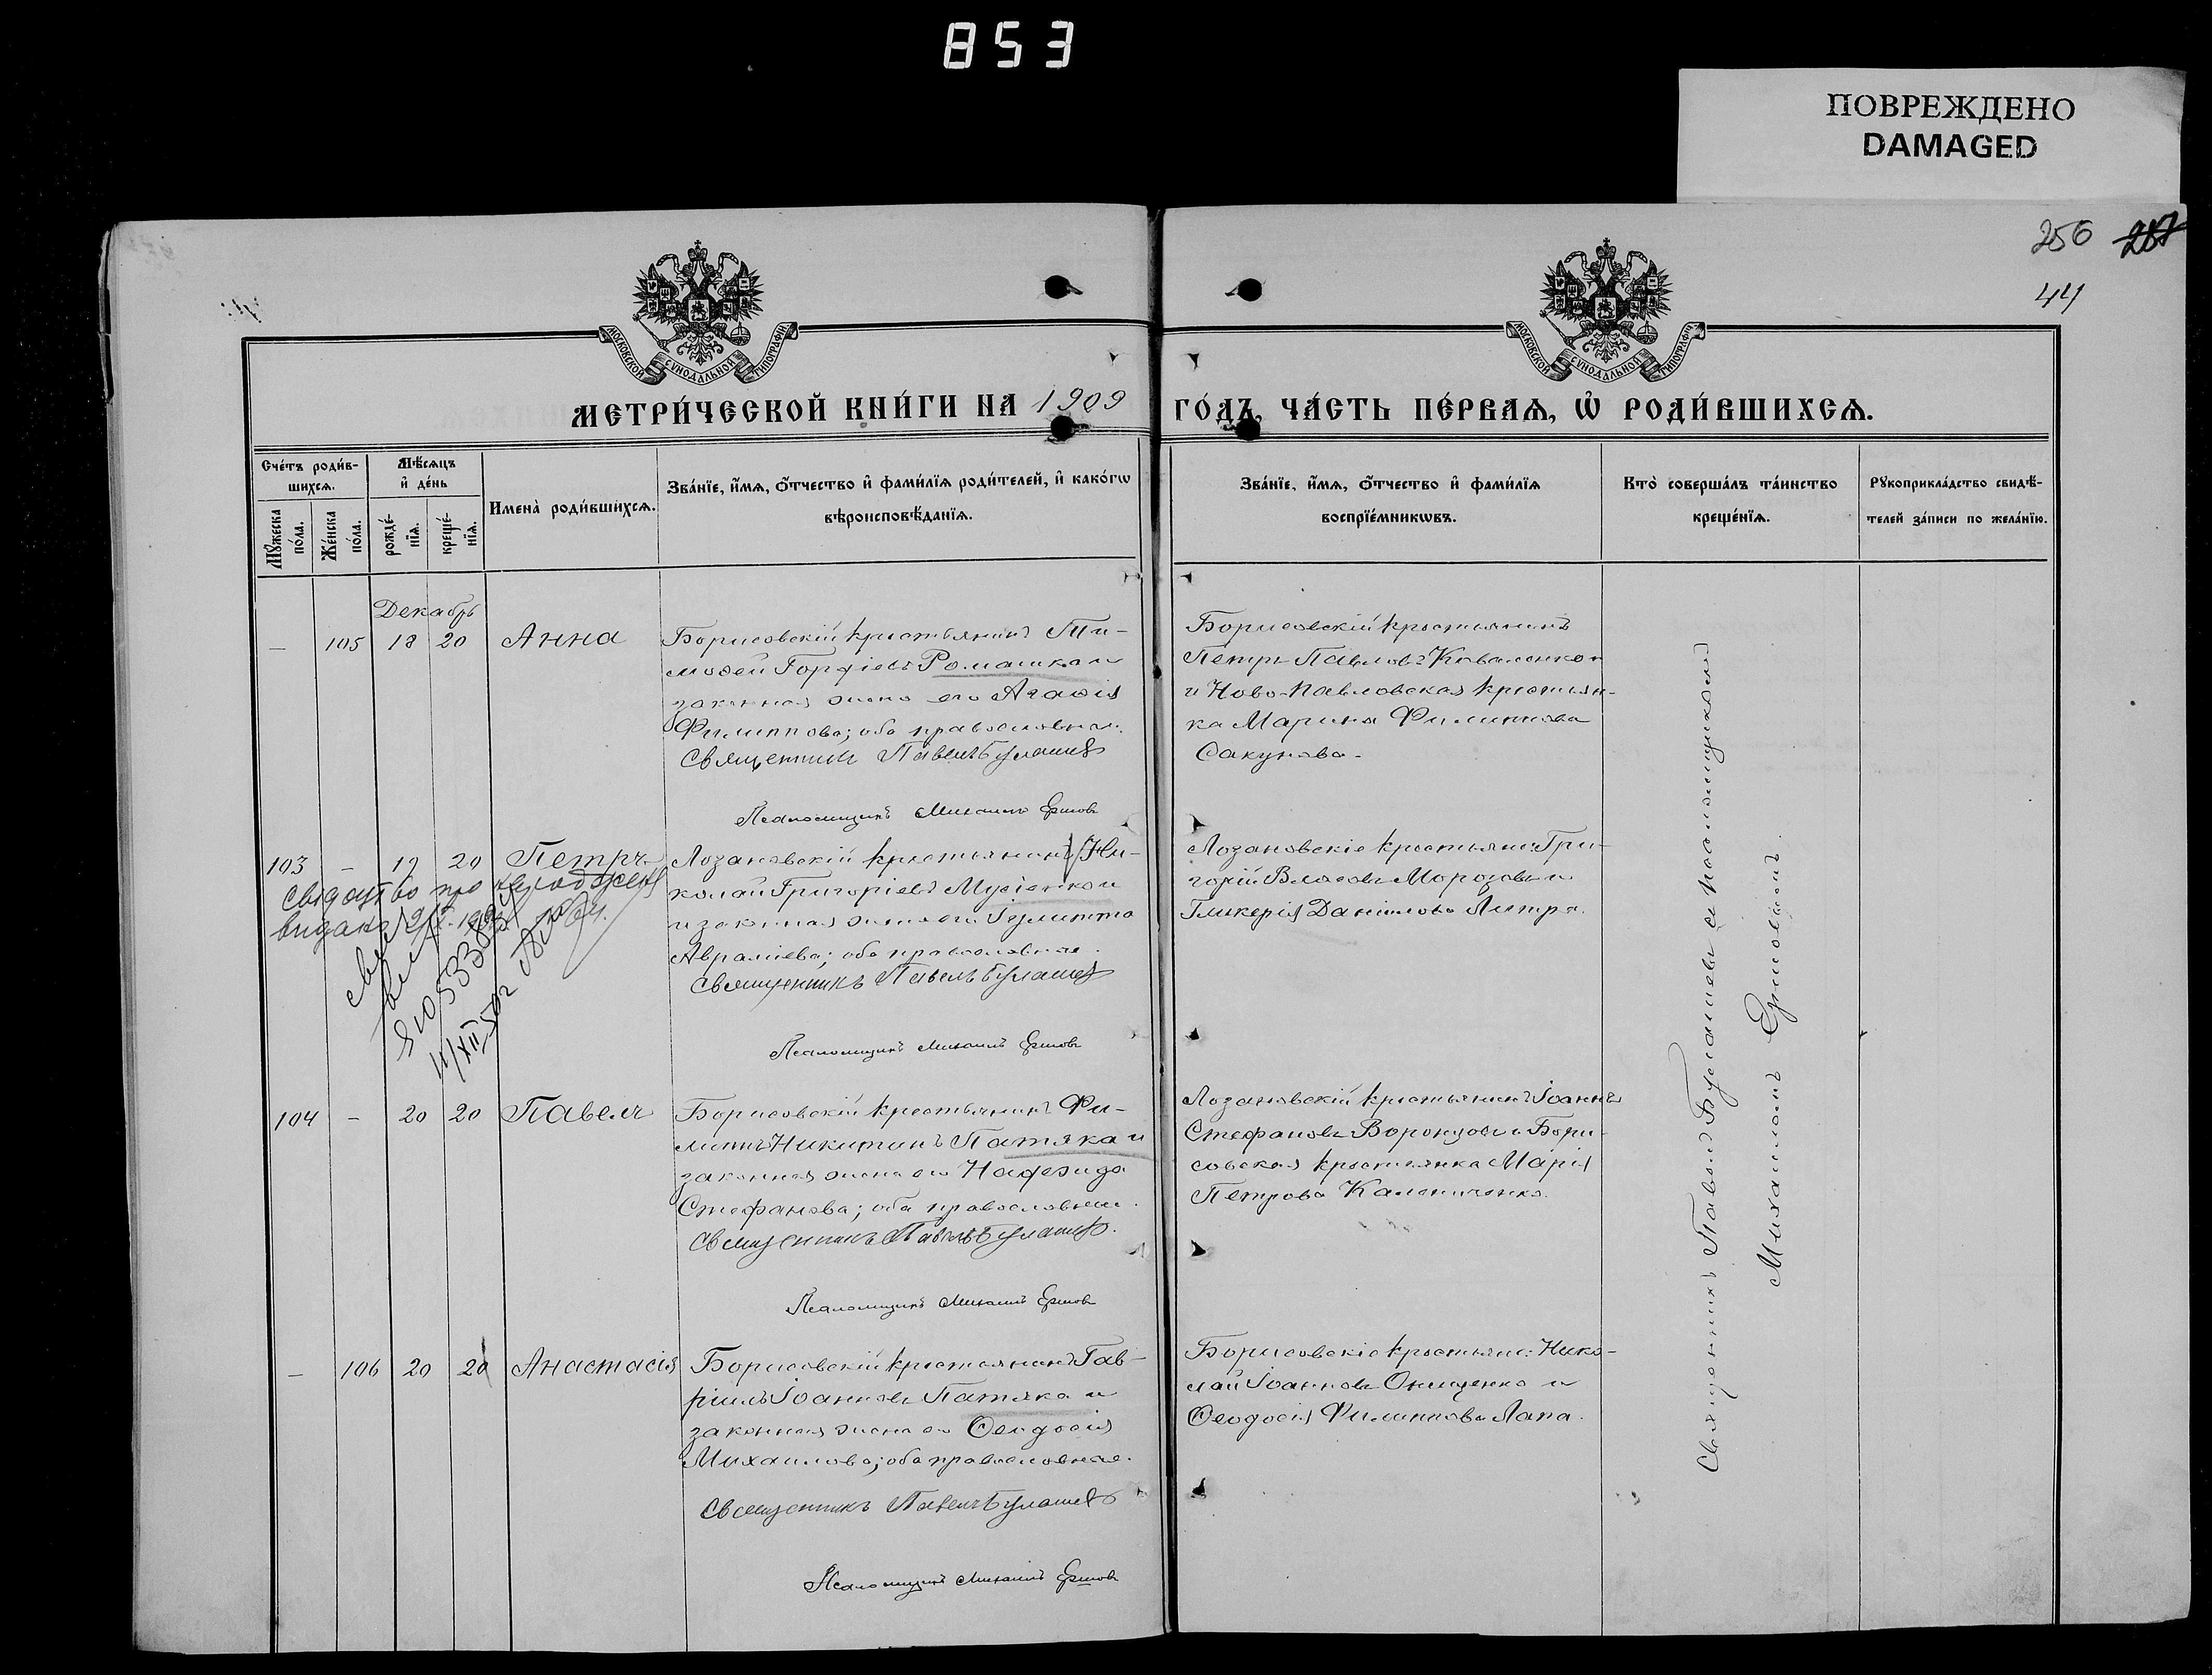 853
ПОВРЕЖДЕНО
DAMAGED
256 257
44
МОСКОВСКОЙ СѴНОДАЛЬНОЙ ТИПОГРАФІИ
МОСКОВСКОЙ СѴНОДАЛЬНОЙ ТИПОГРАФІИ
МЕТРИ́ЧЕСКОЙ КНИ́ГИ НА 1909 ГО́ДЪ, ЧА́СТЬ ПЕ́РВАѦ, Ѽ РОДИ́ВШИХСѦ.
Сче́тъ роди́в-
шихсѧ.
Мꙋ́жеска по́ла.
Же́нска по́ла.
Мѣ́сѧцъ и҆ де́нь
рожде́-
нїѧ.
креще́-
нїѧ.
Имена̀ роди́вшихсѧ.
Зва́нїе, и҆́мѧ, ѻ҆́тчество и҆ фами́лїѧ роди́телей, и҆ како́гѡ
вѣроисповѣ́данїѧ.
Зва́нїе, и҆́мѧ, ѻ҆́тчество и҆ фами́лїѧ
воспрїе́мникѡвъ.
Кто̀ соверша́лъ та́инство
креще́нїѧ.
Рꙋкоприкла́дство свидѣ́-
телей за́писи по жела́нїю.
Декабрь
— 105 18 20 Анна
Борисовскій крестьянинъ Ти-
мофей Гордіевъ Ромашка и
законная жена его Агафія
Филиппова; оба православные.
Священникъ Павелъ Булашевъ
Псаломщикъ Михаилъ Ершовъ
Борисовскій крестьянинъ
Петръ Павловъ Коваленко
и Ново-Павловская крестьян-
ка Марина Филиппова
Сакунова.
103 — 19 20 Петръ
Лозановскій крестьянинъ Ни-
колай Григоріевъ Мусіенко и
законная жена его Іулитта
Авраміева; оба православные.
Священникъ Павелъ Булашевъ
Псаломщикъ Михаилъ Ершовъ
Лозановскіе крестьяне: Гри-
горій Власовъ Морозовъ и
Гликерія Данилова Литра.
свідоцтво про народження
видано
104 — 20 20 Павелъ
Борисовскій крестьянинъ Фи-
липпъ Никитинъ Патяка и
законная жена его Надежда
Стефанова; оба православные.
Священникъ Павелъ Булашевъ.
Псаломщикъ Михаилъ Ершовъ
Лозановскій крестьянинъ Іоаннъ
Стефановъ Воронцовъ и Бори-
совская крестьянка Марія
Петрова Калениченко.
— 106 20 20 Анастасія
Борисовскій крестьянинъ Гав-
ріилъ Іоанновъ Патяка и
законная жена его Ѳеодосія
Михаилова; оба православные.
Священникъ Павелъ Булашевъ
Псаломщикъ Михаилъ Ершовъ
Борисовскіе крестьяне: Нико-
лай Іоанновъ Онищенко и
Ѳеодосія Филиппова Лапа.
Священникъ Павелъ Булашевъ съ псаломщикомъ
Михаиломъ Ершовымъ.